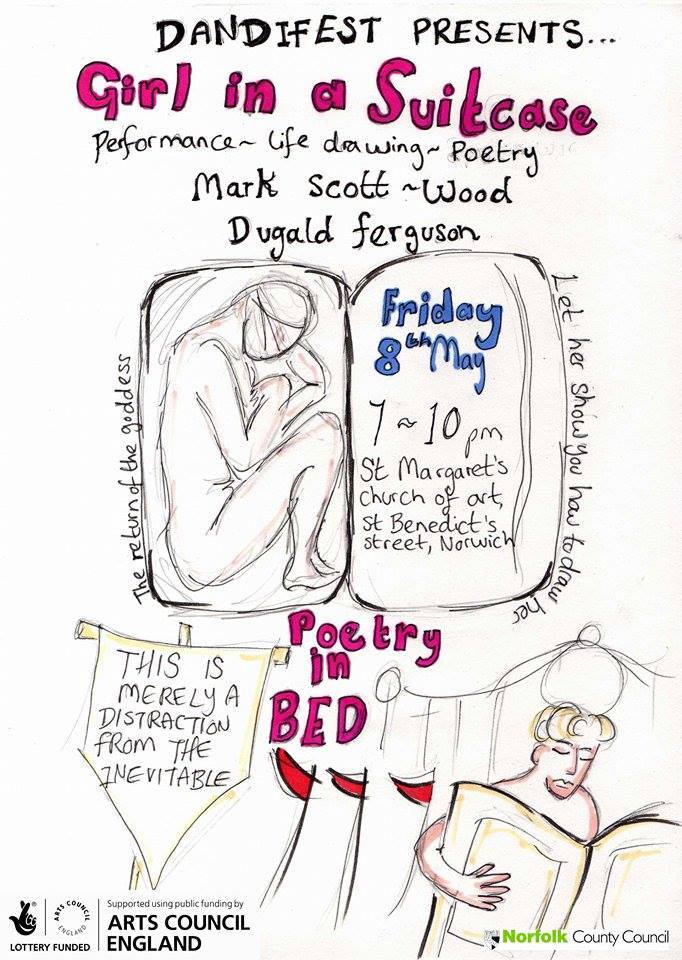 DANDIFEST PRESENTS...
Girl in a Suitcase
Performance~ Life drawing~ Poetry
Mark Scott ~Wood
Dugald Ferguson
The return of the goddess
Friday
8th May
7 ~ 10 pm
St Margaret's
church of art,
St Benedict's
street, Norwich
Let her show you how to draw her
Poetry
in
BED
THIS IS
MERELY A
DISTRACTION
FROM THE
INEVITABLE
LOTTERY FUNDED
ARTS COUNCIL
ENGLAND
Supported using public funding by
ARTS COUNCIL
ENGLAND
Norfolk County Council